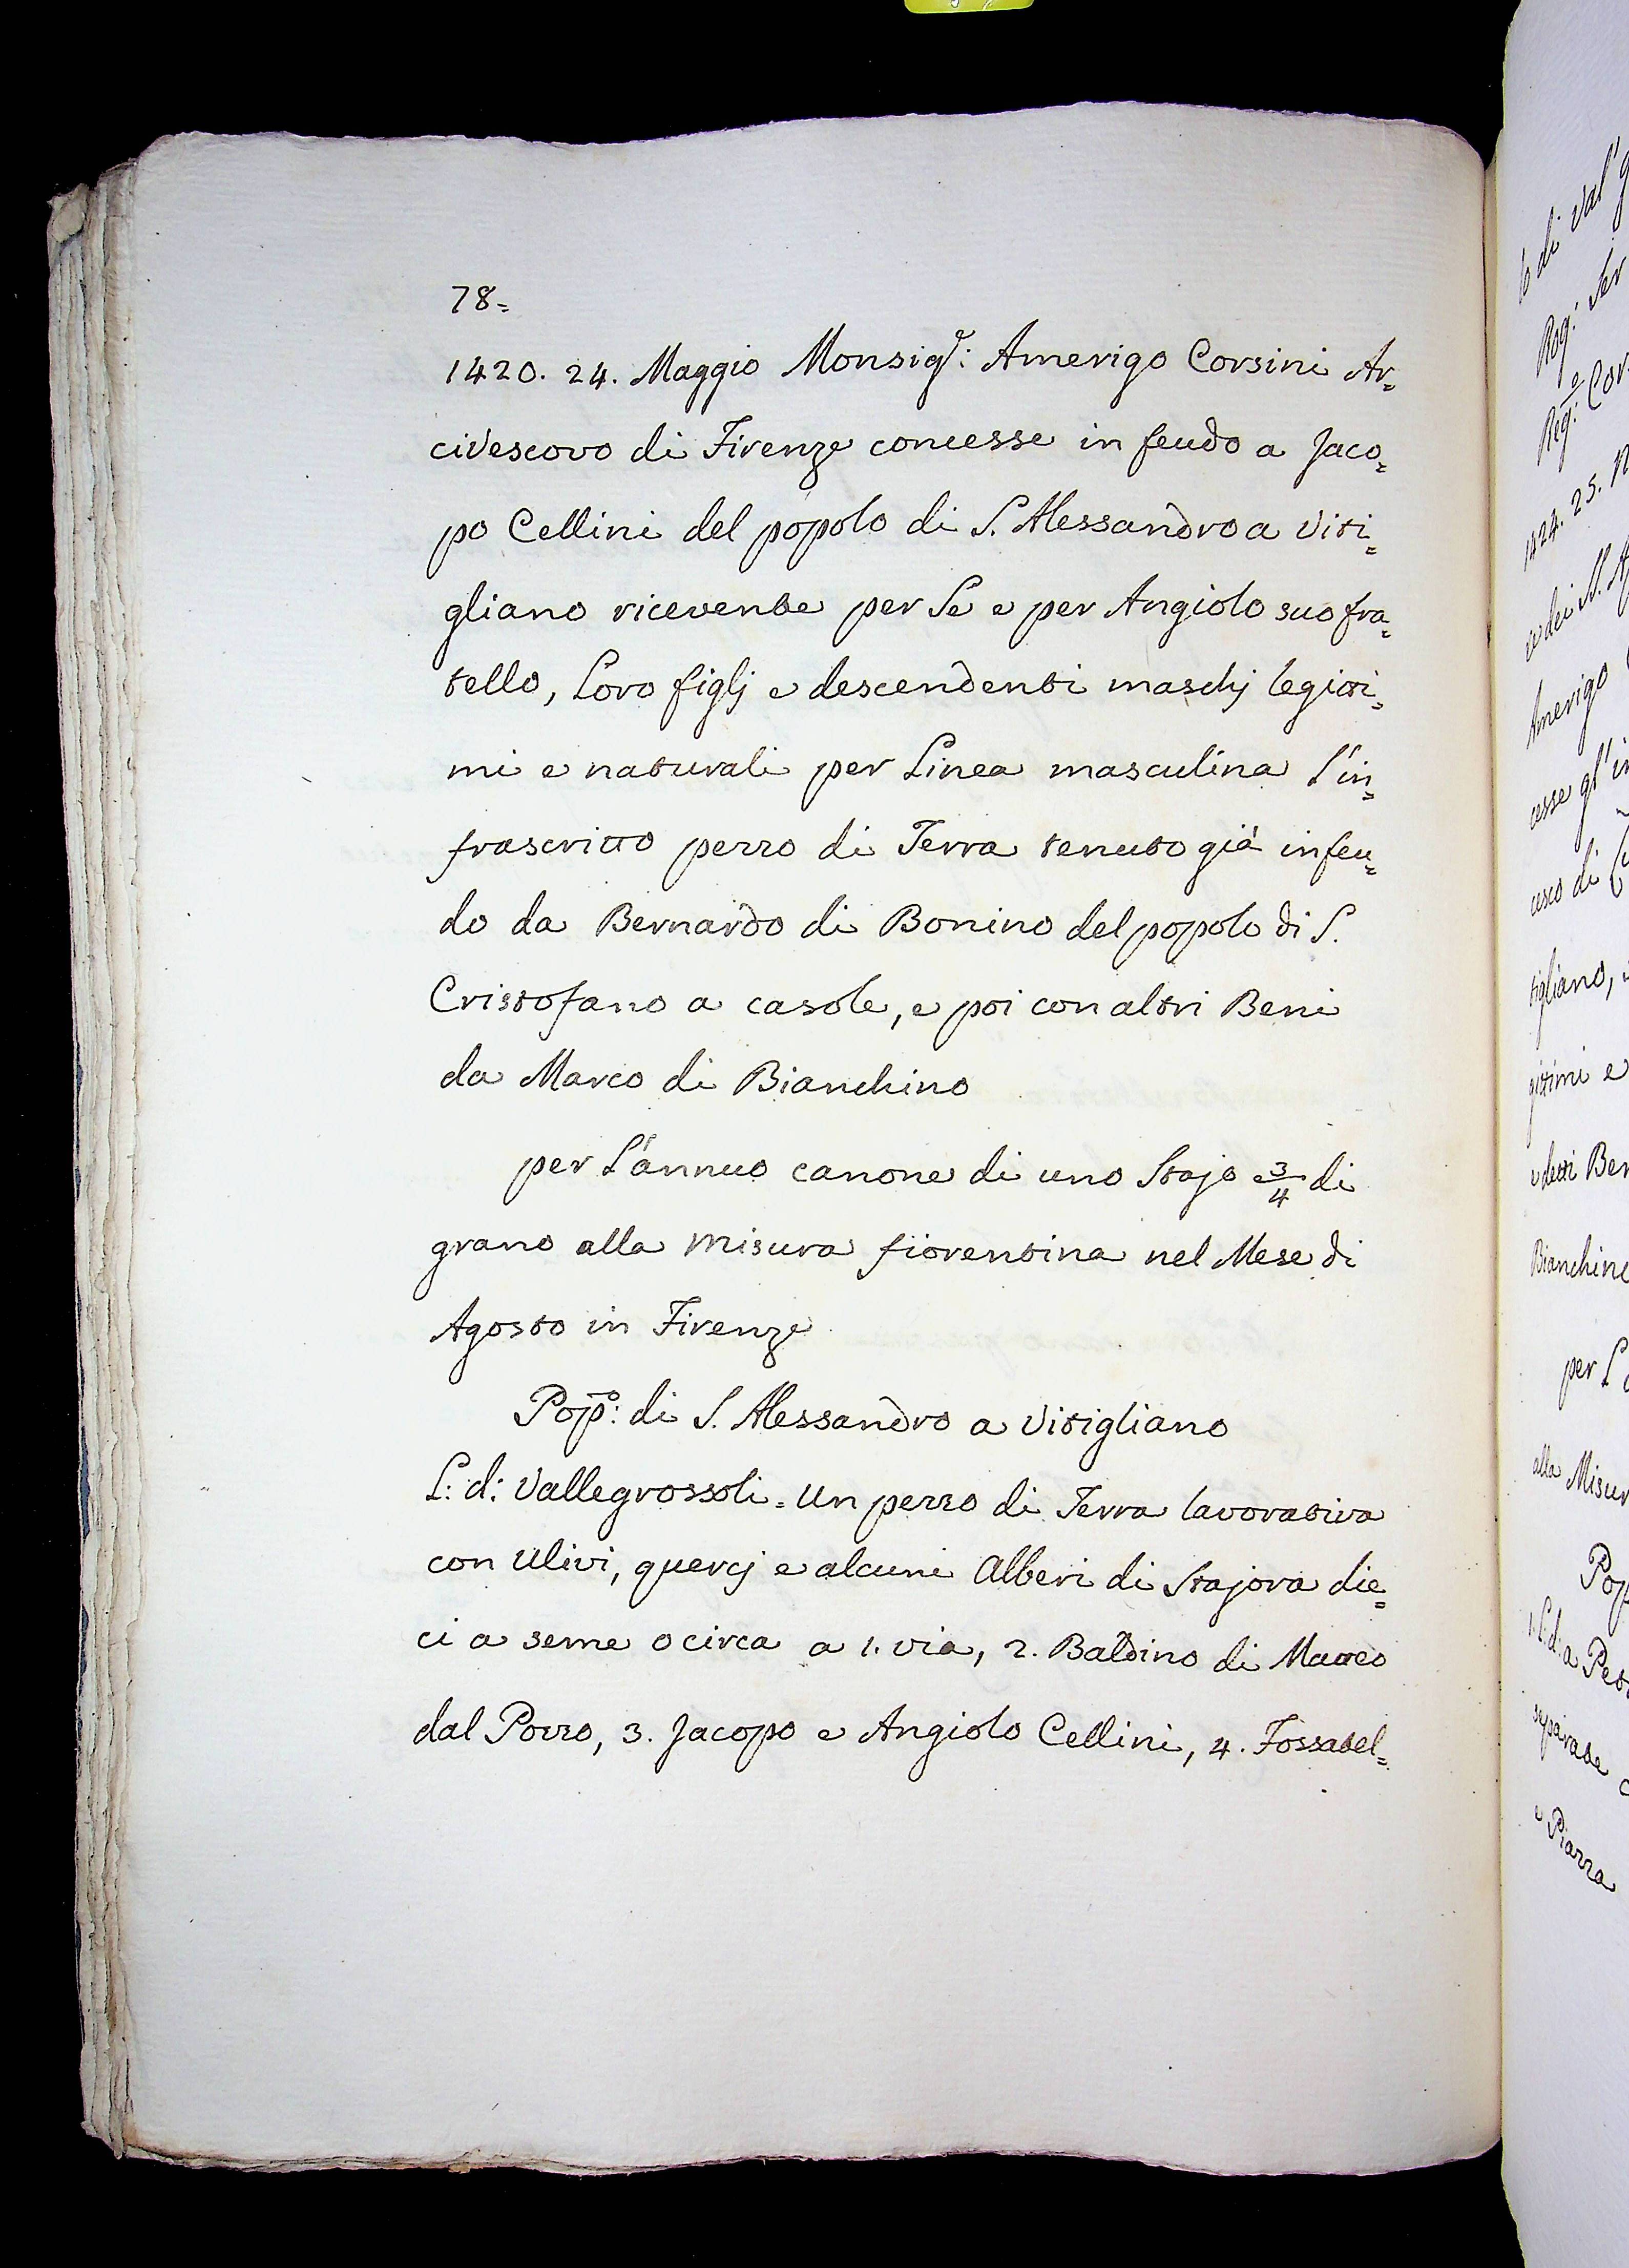 78=
1420. 24. Maggio Monsig.r: Amerigo Corsini Ar=
civescovo di Firenze concesse in feudo a Jaco=
po Cellini del popolo di S. Alessandro a Viti=
gliano ricevente per Se e per Angiolo suo fra=
tello, Loro figlj e descendenti maschj legitti=
mi e naturali per Linea masculina L'in=
frascritto pezzo di Terra tenuto già in feu=
do da Bernardo di Bonino del popolo di S.
Cristofano a casole, e poi con altri Beni
da Marco di Bianchino
per L'annuo canone di uno Stajo e 3/4 di
grano alla misura fiorentina nel Mese di
Agosto in Firenze
Pop.o: di S. Alessandro a Vitigliano
L: d: Vallegrossoli = Un pezzo di Terra lavorativa
con Ulivi, quercj e alcuni Alberi di Stajora die=
ci a seme o circa a 1. via, 2. Baldino di Marco
dal Pozzo, 3. Jacopo e Angiolo Cellini, 4. Fossatel=
lo di Val'g
Rog: Ser
Reg.e: Cor
1424. 25. N
Amerigo
cesse gl'in
cesco di
tigliano,
gittimi e
e detti Ben
Bianchino
per L'
alla Misur
Pop
1. L: d: a Pet
separate
e Piazza